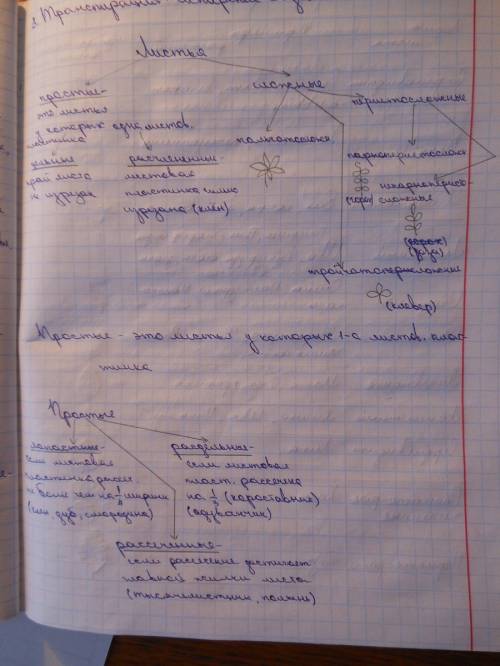 2. Транспирация
Листья
простые-
это листья
у которых одна листов.
пластинка
цельные
край листа
не изрезан
рассеченные-
листовая
пластинка
изрезана (клён)
сложные
пальчатосложн.
перистосложные
парноперистосложн
(горох)
непарноперисто-
сложные
(роза)
тройчатоперисложные
(клевер)
Простые - это листья у которых 1-а листов. плас-
тинка
Простые
лопастные-
если листовая
пластинка рассеч.
не более чем на 1/4 ширины
(клен, дуб, смородина)
раздельные-
если листовая
пласт. рассечена
на 1/3 (короставник)
(одуванчик)
рассеченные-
если рассечение достигает
главной жилки листа
(тысячелистник, полынь)